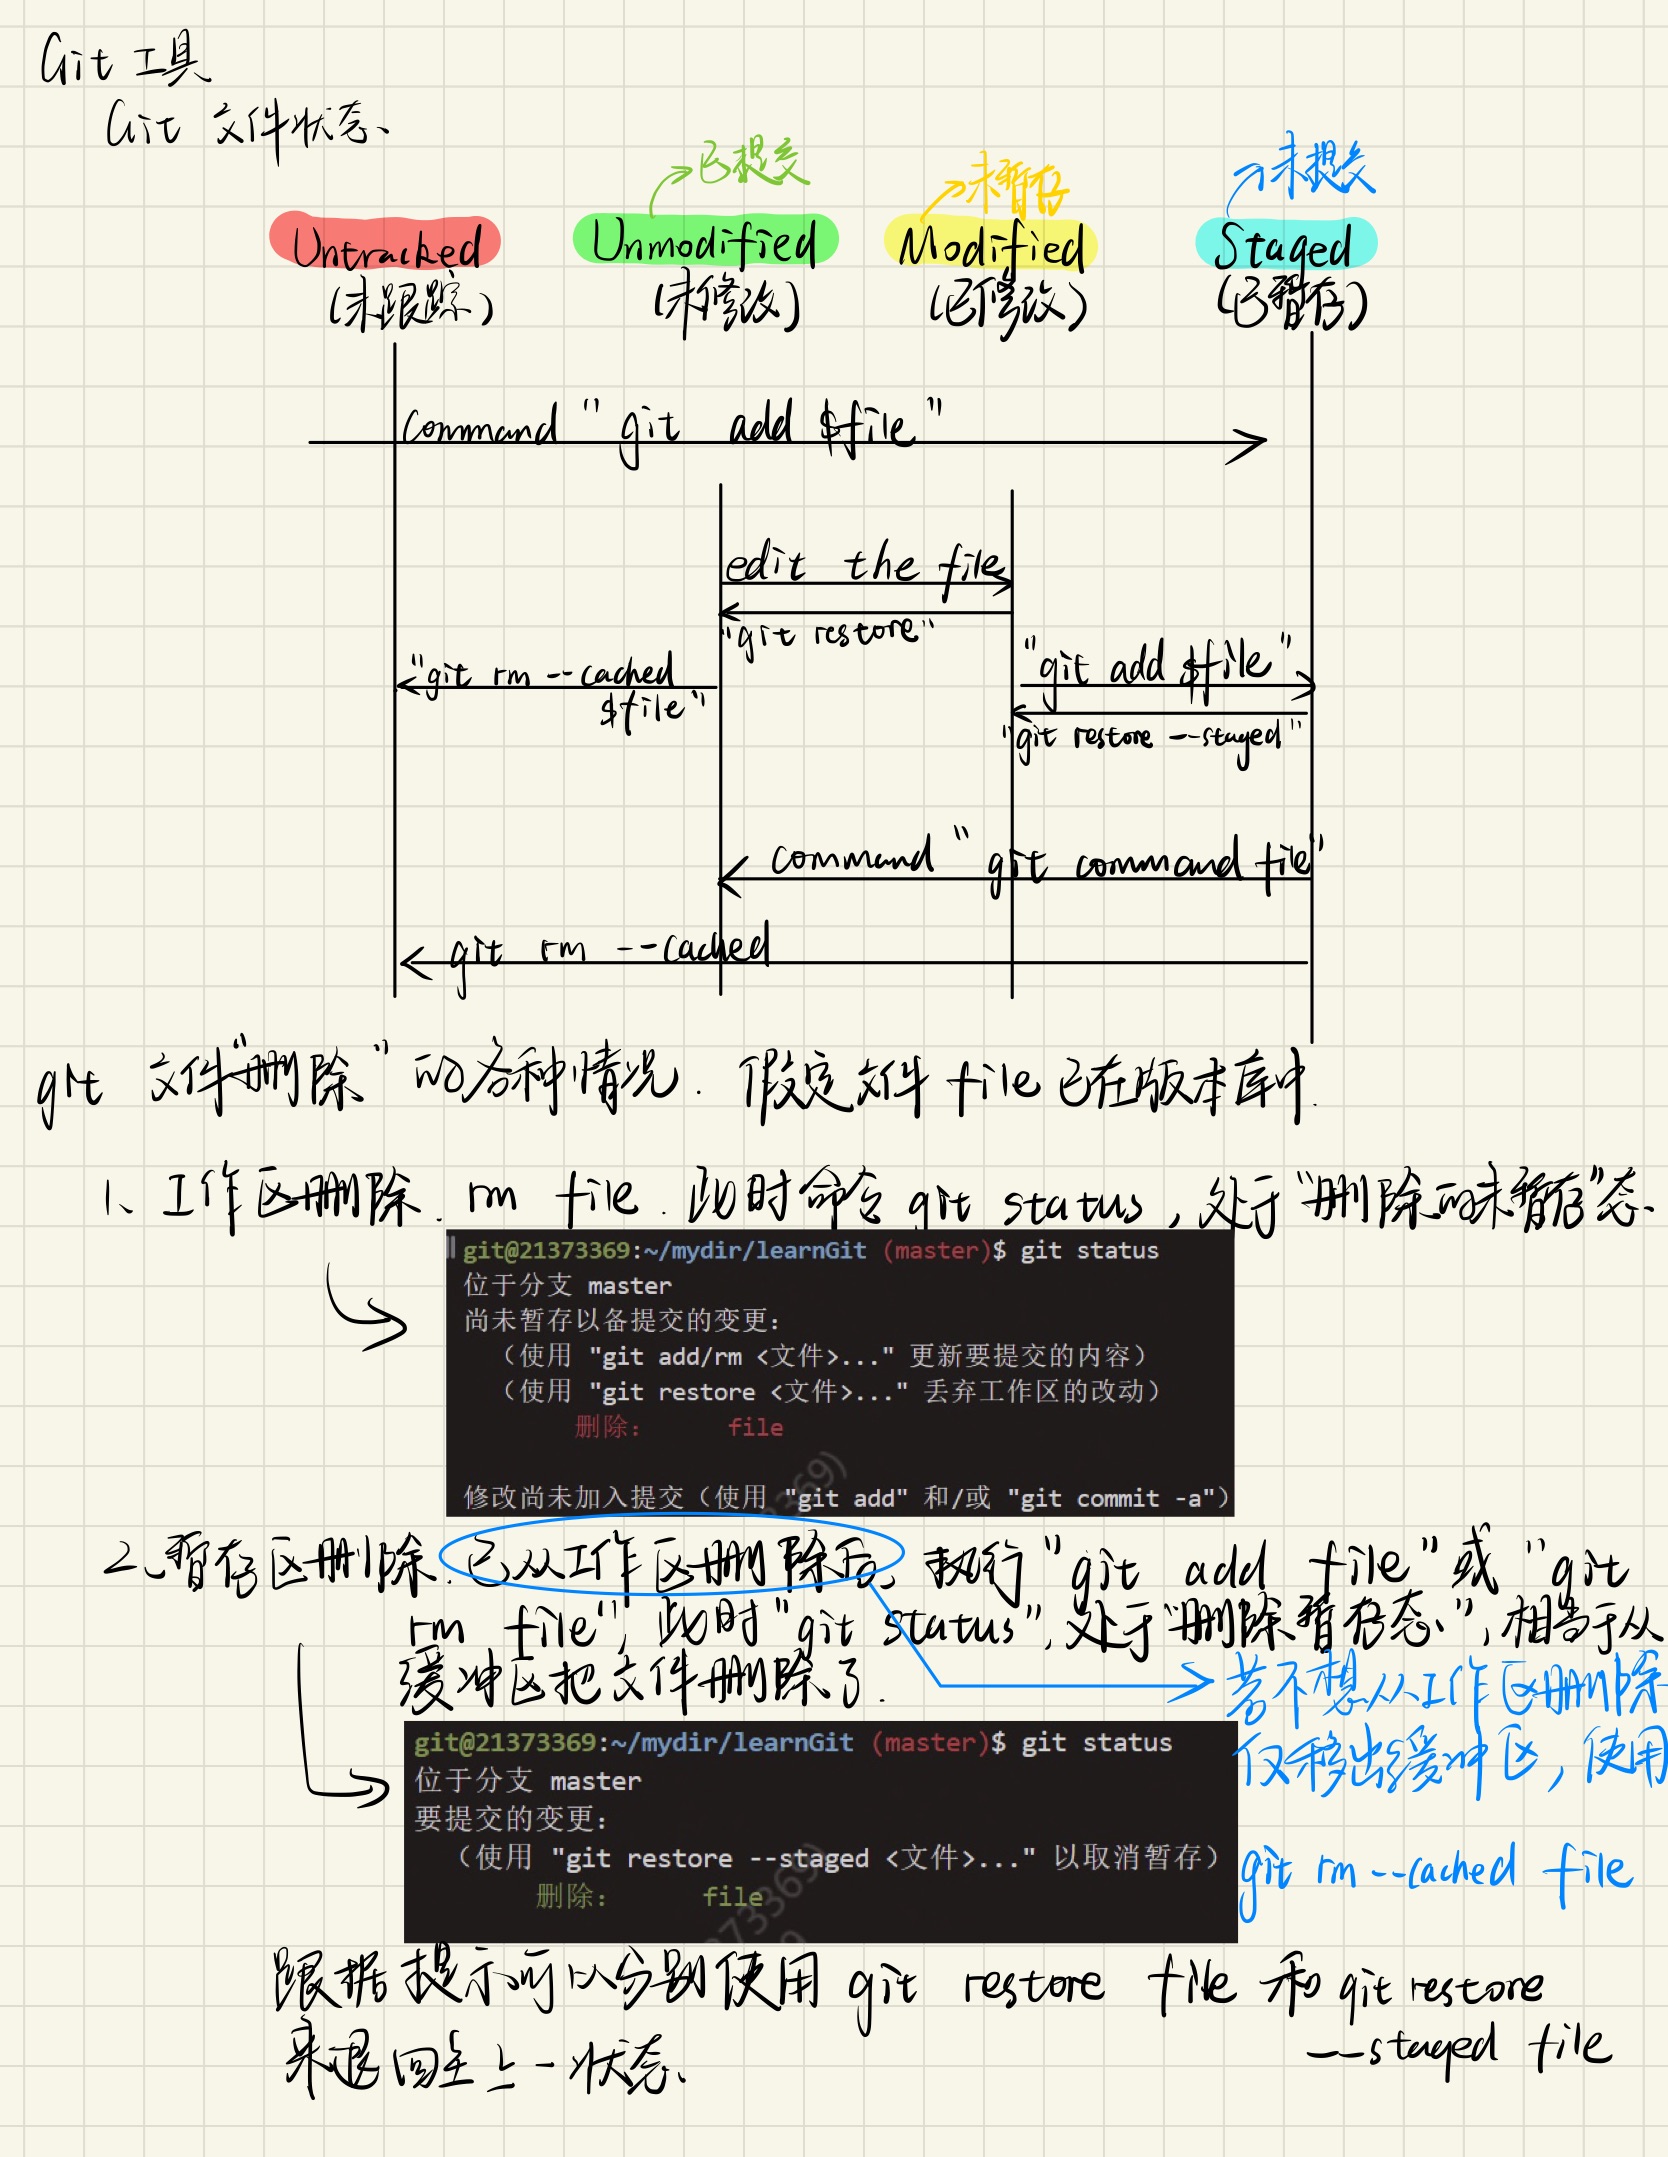 Git 工具
Git 文件状态、
已提交 未暂存 未提交
Untracked Unmodified Modified Staged
(未跟踪) (未修改) (已修改) (已暂存)
command "git add $file"
edit the file
"git restore"
"git rm --cached $file"
"git add $file"
"git restore --staged"
command "git command file"
git rm --cached
git 文件"删除"的各种情况. 假定文件 file 已在版本库中.
1、工作区删除. rm file. 此时命令 git status, 处于"删除的未暂存"态、
git@21373369:~/mydir/learnGit (master)$ git status
位于分支 master
尚未暂存以备提交的变更:
（使用 "git add/rm <文件>..." 更新要提交的内容）
（使用 "git restore <文件>..." 丢弃工作区的改动）
删除: file
369)
修改尚未加入提交（使用 "git add" 和/或 "git commit -a"）
2、暂存区删除. 已从工作区删除后, 执行"git add file"或"git
rm file", 此时"git status", 处于"删除暂存态、", 相当于从
缓冲区把文件删除了.
若不想从工作区删除
仅移出缓冲区, 使用
git rm --cached file
git@21373369:~/mydir/learnGit (master)$ git status
位于分支 master
要提交的变更:
（使用 "git restore --staged <文件>..." 以取消暂存）
删除: file
73369)
跟据提示可以分别使用 git restore file 和 git restore
--staged file
来退回至上一状态、